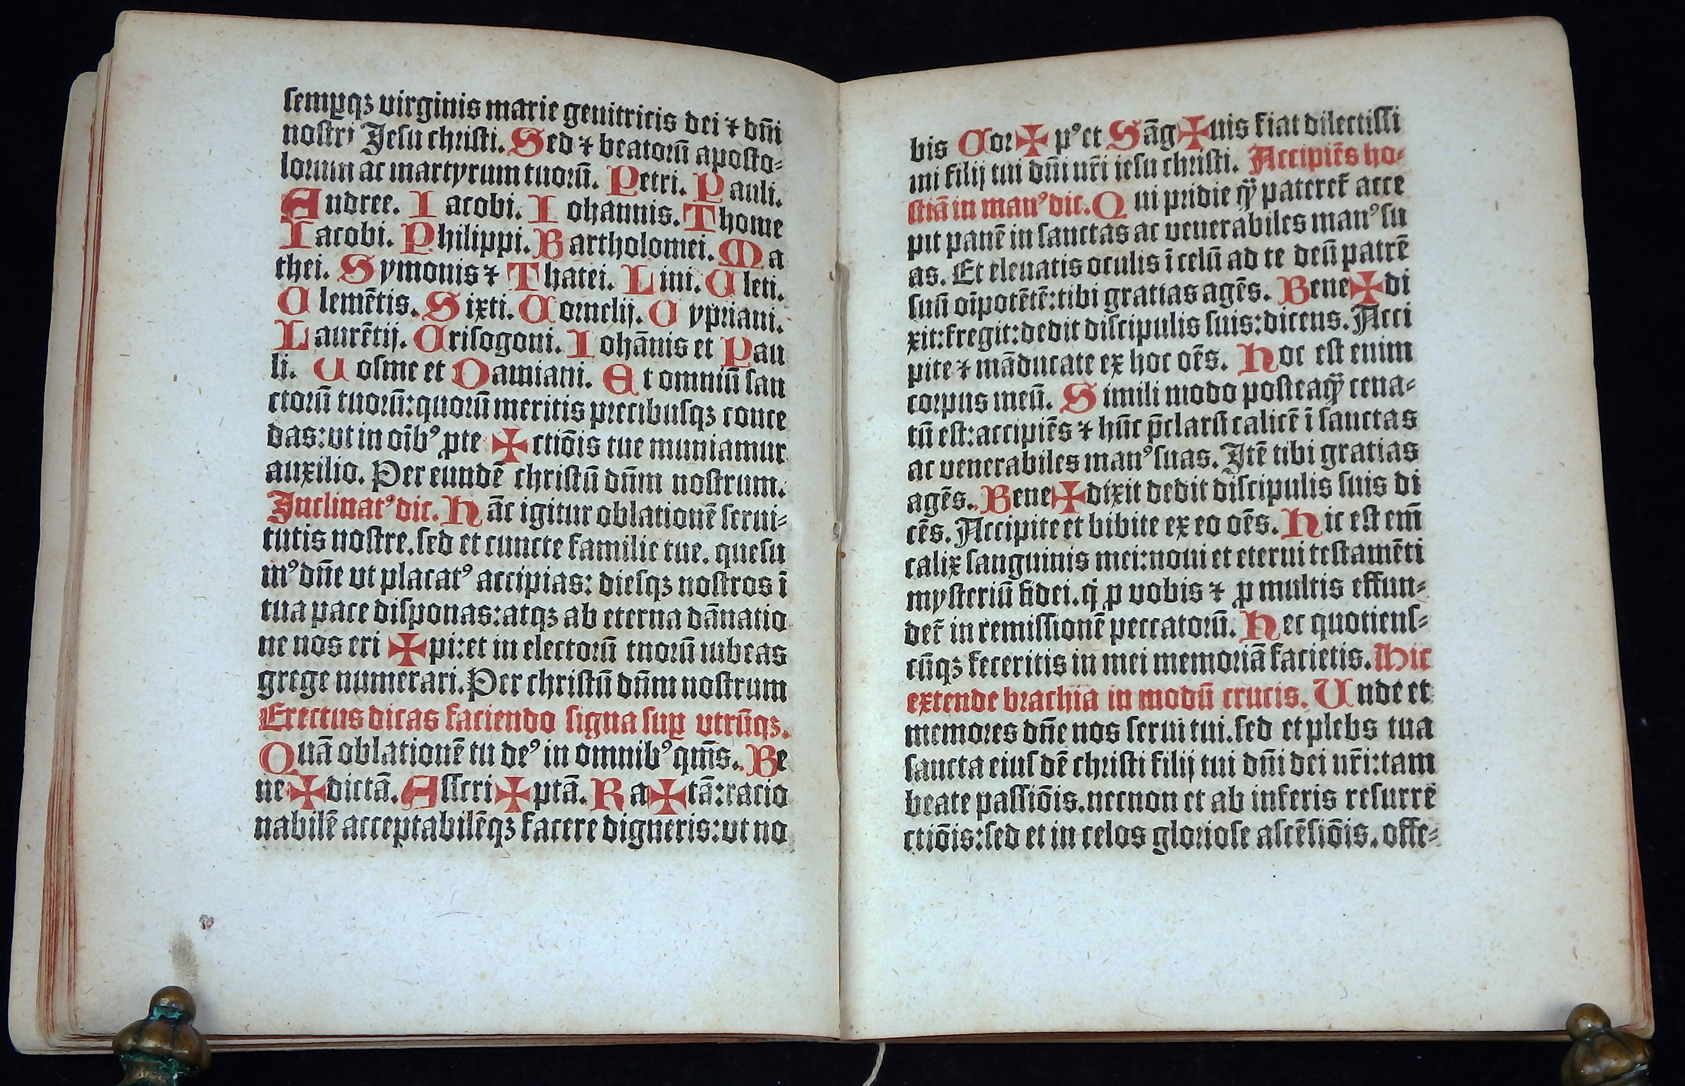 semꝑqꝫ virginis marie genitricis dei ⁊ dn̄i
nostri Jesu christi. Sed ⁊ beatoꝝ aposto-
loꝛum ac martyrum tuoꝛū. Petri. Pauli.
Andree. Iacobi. Iohannis. Thome
Iacobi. Philippi. Bartholomei. Ma
thei. Symonis ⁊ Thatei. Lini. Cleti.
Clemētis. Sixti. Coꝛnelij. Cypꝛiani.
Laurētij. Crisogoni. Iohānis et Pau
li. Cosme et Damiani. Et omniū san
ctoꝛū tuoꝛū: quoꝛū meritis pꝛecibusqꝫ conce
das: vt in oībꝰ ꝓte ✠ ctiōis tue muniamur
auxilio. Per eundē christū dn̄m nostrum.
Inclinatꝰ dic. Hāc igitur oblationē serui-
tutis nostre. sed et cuncte familie tue. quesu
mꝰ dn̄e vt placatꝰ accipias: diesqꝫ nostros ī
tua pace disponas: atqꝫ ab eterna dānatio
ne nos eri ✠ pi: et in electoꝛū tuoꝛū iubeas
grege numerari. Per christū dn̄m nostrum
Erectus dicas faciendo signa suꝑ vtrūqꝫ.
Quā oblationē tu deꝰ in omnibꝰ qm̄s. Be
ne ✠ dictā. Asscri ✠ ptā. Ra ✠ tā: racio
nabilē acceptabilēqꝫ facere digneris: vt no
bis Coꝛ ✠ pꝰ et Sāg ✠ uis fiat dilectissi
mi filij tui dn̄i nr̄i iesu christi. Accipiēs ho-
stiā in manꝰ dic. Qui pꝛidie qꝫ pateret᷑ acce
pit panē in sanctas ac venerabiles manꝰ su
as. Et eleuatis oculis ī celū ad te deū patrē
suū oīpotētē: tibi gratias agēs. Bene ✠ di
xit: fregit: dedit discipulis suis: dicens. Acci
pite ⁊ māducate ex hoc oēs. Hoc est enim
coꝛpus meū. Simili modo posteaqꝫ cena-
tū est: accipiēs ⁊ hūc p̄clarū calicē ī sanctas
ac venerabiles manꝰ suas. Itē tibi gratias
agēs. Bene ✠ dixit dedit discipulis suis di
cēs. Accipite et bibite ex eo oēs. Hic est em̄
calix sanguinis mei: noui et eterni testamēti
mysteriū fidei. q̇ ꝓ vobis ⁊ ꝓ multis effun-
det᷑ in remissionē peccatoꝛū. Hec quotiens-
cūqꝫ feceritis in mei memoꝛiā facietis. Hic
extende bꝛachia in modū crucis. Unde et
memoꝛes dn̄e nos serui tui. sed et plebs tua
sancta eiusdē christi filij tui dn̄i dei nr̄i: tam
beate passiōis. necnon et ab inferis resurre
ctiōis: sed et in celos gloꝛiose ascēsiōis. offe-